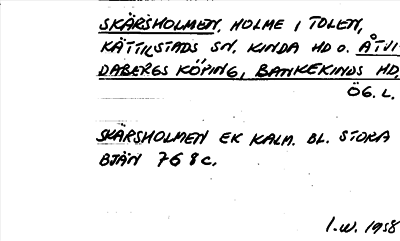 SKÄRSHOLMEN, HOLME I TOLEN,
KÄTTILSTADS SN, KINDA HD O. ÅTVI-
DABERGS KÖPING, BANKEKINDS HD,
ÖG. L.
SKÄRSHOLMEN EK KALM. BL. STORA
BJÄN 768c.
I.W. 1958